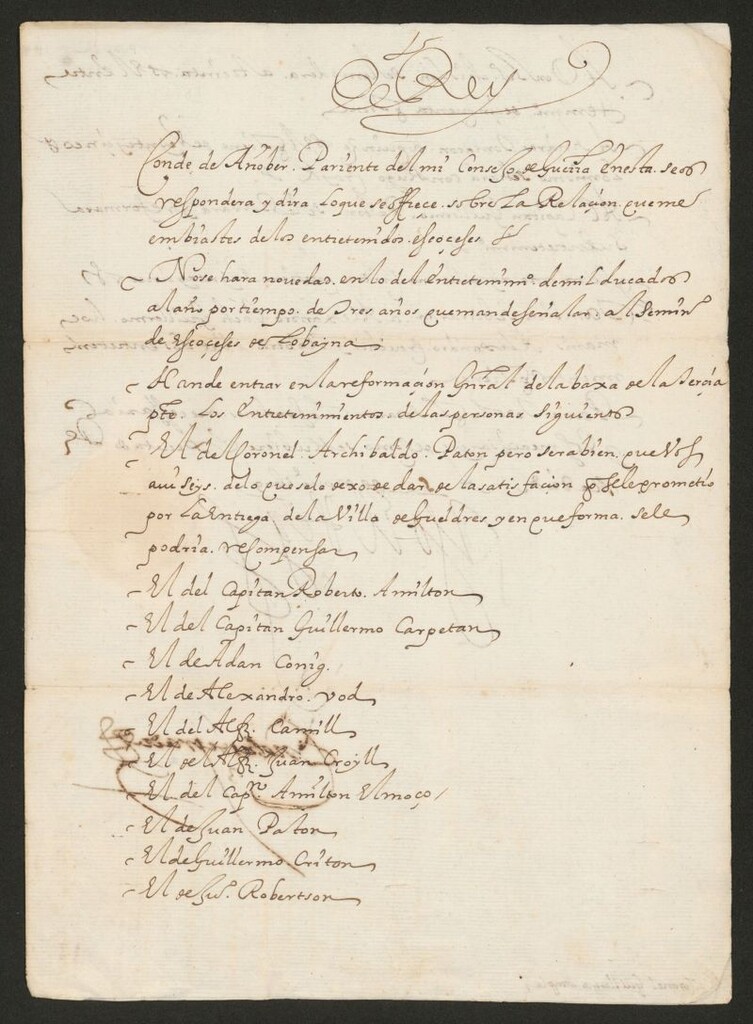 El Rey
Conde de Añober. Pariente del mi Consejo de Guerra En esta. se os
respondera y dira lo que se offreçe. sobre La Relaçion, que me
embiastes de los entretenidos. escoçeses
No se hara novedad. en lo del Entretenimº. de mil ducados
al año por tiempo. de Tres años que mande señalar. al Semin.º
de Escoçeses de Lobayna
Han de entrar en la reformaçion Gñral de la baxa de la Terçia
pte. Los Entretenimientos. de las personas siguientes
El del Coronel Archibaldo. Paton pero sera bien, que Vos
aviseys. de lo que se lo dexo de dar de la satisfacion q̃ se le prometio
por La Entrega de la Villa de Gueldres y en que forma. se le
podria. recompensar
El del Capitan Roberto. Amilton
El del Capitan Guillermo Carpetan
El de Adan Conig.
El de Alexandro. vod
El del Alfz. Camill
El del Alfz. Juan Croyll
El del Capn. Amilton El moço /
El de Juan Paton
El de Guillermo Criton
El de Ju.º Robertson